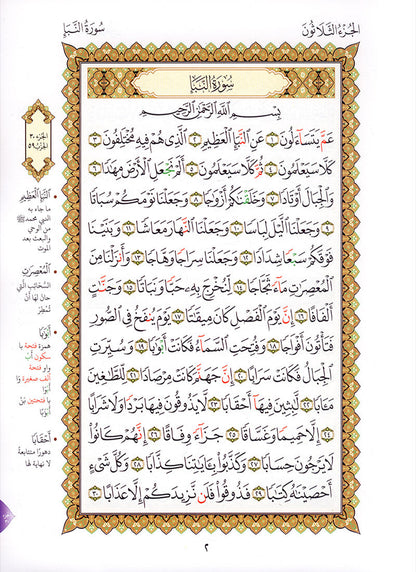 الجُزْءُ الثَّلَاثُونَ
سُورَةُ النَّبَإِ
سُورَةُ النَّبَإِ
بِسْمِ اللَّهِ الرَّحْمَٰنِ الرَّحِيمِ
عَمَّ يَتَسَآءَلُونَ ١ عَنِ ٱلنَّبَإِ ٱلْعَظِيمِ ٢ ٱلَّذِى هُمْ فِيهِ مُخْتَلِفُونَ ٣
كَلَّا سَيَعْلَمُونَ ٤ ثُمَّ كَلَّا سَيَعْلَمُونَ ٥ أَلَمْ نَجْعَلِ ٱلْأَرْضَ مِهَٰدًا ٦
وَٱلْجِبَالَ أَوْتَادًا ٧ وَخَلَقْنَٰكُمْ أَزْوَٰجًا ٨ وَجَعَلْنَا نَوْمَكُمْ سُبَاتًا
٩ وَجَعَلْنَا ٱلَّيْلَ لِبَاسًا ١٠ وَجَعَلْنَا ٱلنَّهَارَ مَعَاشًا ١١ وَبَنَيْنَا
فَوْقَكُمْ سَبْعًا شِدَادًا ١٢ وَجَعَلْنَا سِرَاجًا وَهَّاجًا ١٣ وَأَنزَلْنَا مِنَ
ٱلْمُعْصِرَٰتِ مَآءً ثَجَّاجًا ١٤ لِّنُخْرِجَ بِهِۦ حَبًّا وَنَبَاتًا ١٥ وَجَنَّٰتٍ
أَلْفَافًا ١٦ إِنَّ يَوْمَ ٱلْفَصْلِ كَانَ مِيقَٰتًا ١٧ يَوْمَ يُنفَخُ فِى ٱلصُّورِ
فَتَأْتُونَ أَفْوَاجًا ١٨ وَفُتِحَتِ ٱلسَّمَآءُ فَكَانَتْ أَبْوَٰبًا ١٩ وَسُيِّرَتِ
ٱلْجِبَالُ فَكَانَتْ سَرَابًا ٢٠ إِنَّ جَهَنَّمَ كَانَتْ مِرْصَادًا ٢١ لِّلطَّٰغِينَ
مَـَٔابًا ٢٢ لَّٰبِثِينَ فِيهَآ أَحْقَابًا ٢٣ لَّا يَذُوقُونَ فِيهَا بَرْدًا وَلَا شَرَابًا
٢٤ إِلَّا حَمِيمًا وَغَسَّاقًا ٢٥ جَزَآءً وِفَاقًا ٢٦ إِنَّهُمْ كَانُوا۟
لَا يَرْجُونَ حِسَابًا ٢٧ وَكَذَّبُوا۟ بِـَٔايَٰتِنَا كِذَّابًا ٢٨ وَكُلَّ شَىْءٍ
أَحْصَيْنَٰهُ كِتَٰبًا ٢٩ فَذُوقُوا۟ فَلَن نَّزِيدَكُمْ إِلَّا عَذَابًا ٣٠
الجزء ٣٠
الحزب ٥٩
• النَّبَإِ العَظِيمِ
ما جاء به
النبي محمد ﷺ
من الوحي
والبعث بعد
الموت
• المُعْصِرَاتِ
السَّحَائِبِ الَّتِي
حَانَ لَهَا أَنْ
تُمْطِرَ
• أَبْوَابًا
همزة فتحة با
سكون أب
واو فتحة
ألف صغيرة وا
با فتحتين بن
أبوابًا
• أَحْقَابًا
دهورًا متتابعة
لا نهاية لها
٢